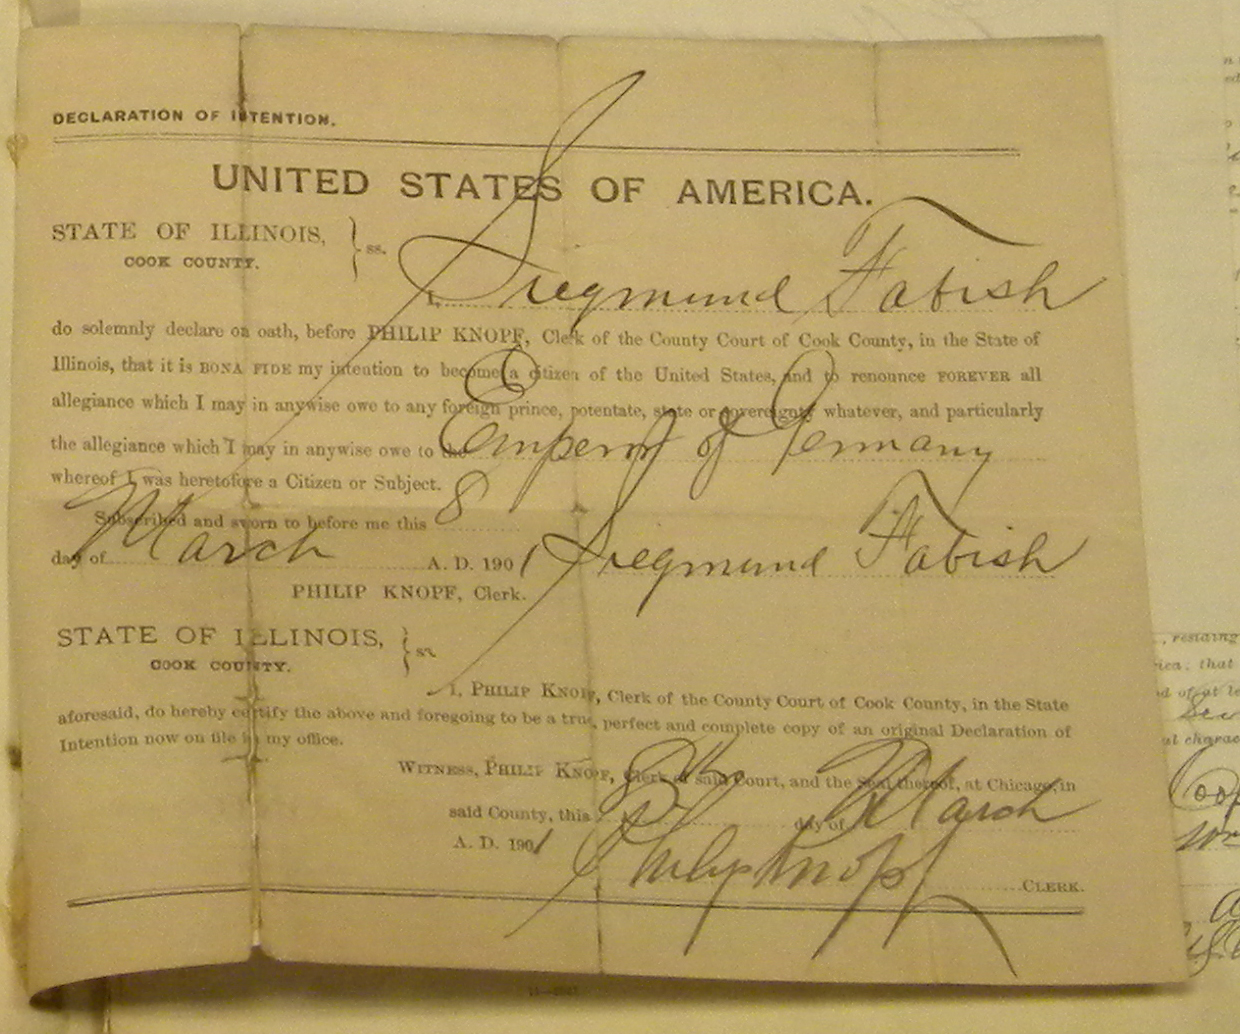 DECLARATION OF INTENTION.
UNITED STATES OF AMERICA.
STATE OF ILLINOIS,
COOK COUNTY. } ss.
I, Siegmund Fabish
do solemnly declare on oath, before PHILIP KNOPF, Clerk of the County Court of Cook County, in the State of
Illinois, that it is BONA FIDE my intention to become a citizen of the United States, and to renounce FOREVER all
allegiance which I may in anywise owe to any foreign prince, potentate, state or sovereignty whatever, and particularly
the allegiance which I may in anywise owe to the Emperor of Germany
whereof I was heretofore a Citizen or Subject.
Subscribed and sworn to before me this 8
day of March A. D. 1901 Siegmund Fabish
PHILIP KNOPF, Clerk.
STATE OF ILLINOIS,
COOK COUNTY. } ss.
I, PHILIP KNOPF, Clerk of the County Court of Cook County, in the State
aforesaid, do hereby certify the above and foregoing to be a true, perfect and complete copy of an original Declaration of
Intention now on file in my office.
WITNESS, PHILIP KNOPF, Clerk of said Court, and the Seal thereof, at Chicago, in
said County, this 8th day of March
A. D. 1901
Philip Knopf CLERK.
, residing
that
charac